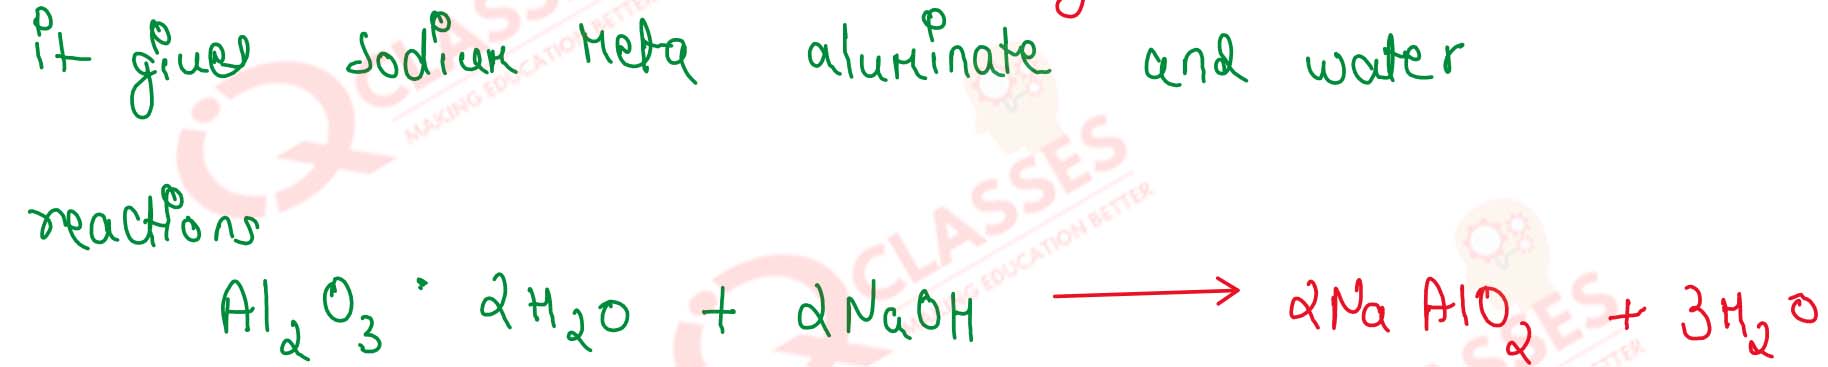 it gives sodium Meta aluminate and water
reactions
Al₂O₃ · 2H₂O + 2NaOH ⟶ 2NaAlO₂ + 3H₂O
QCLASSES
MAKING EDUCATION BETTER
QCLASSES
MAKING EDUCATION BETTER